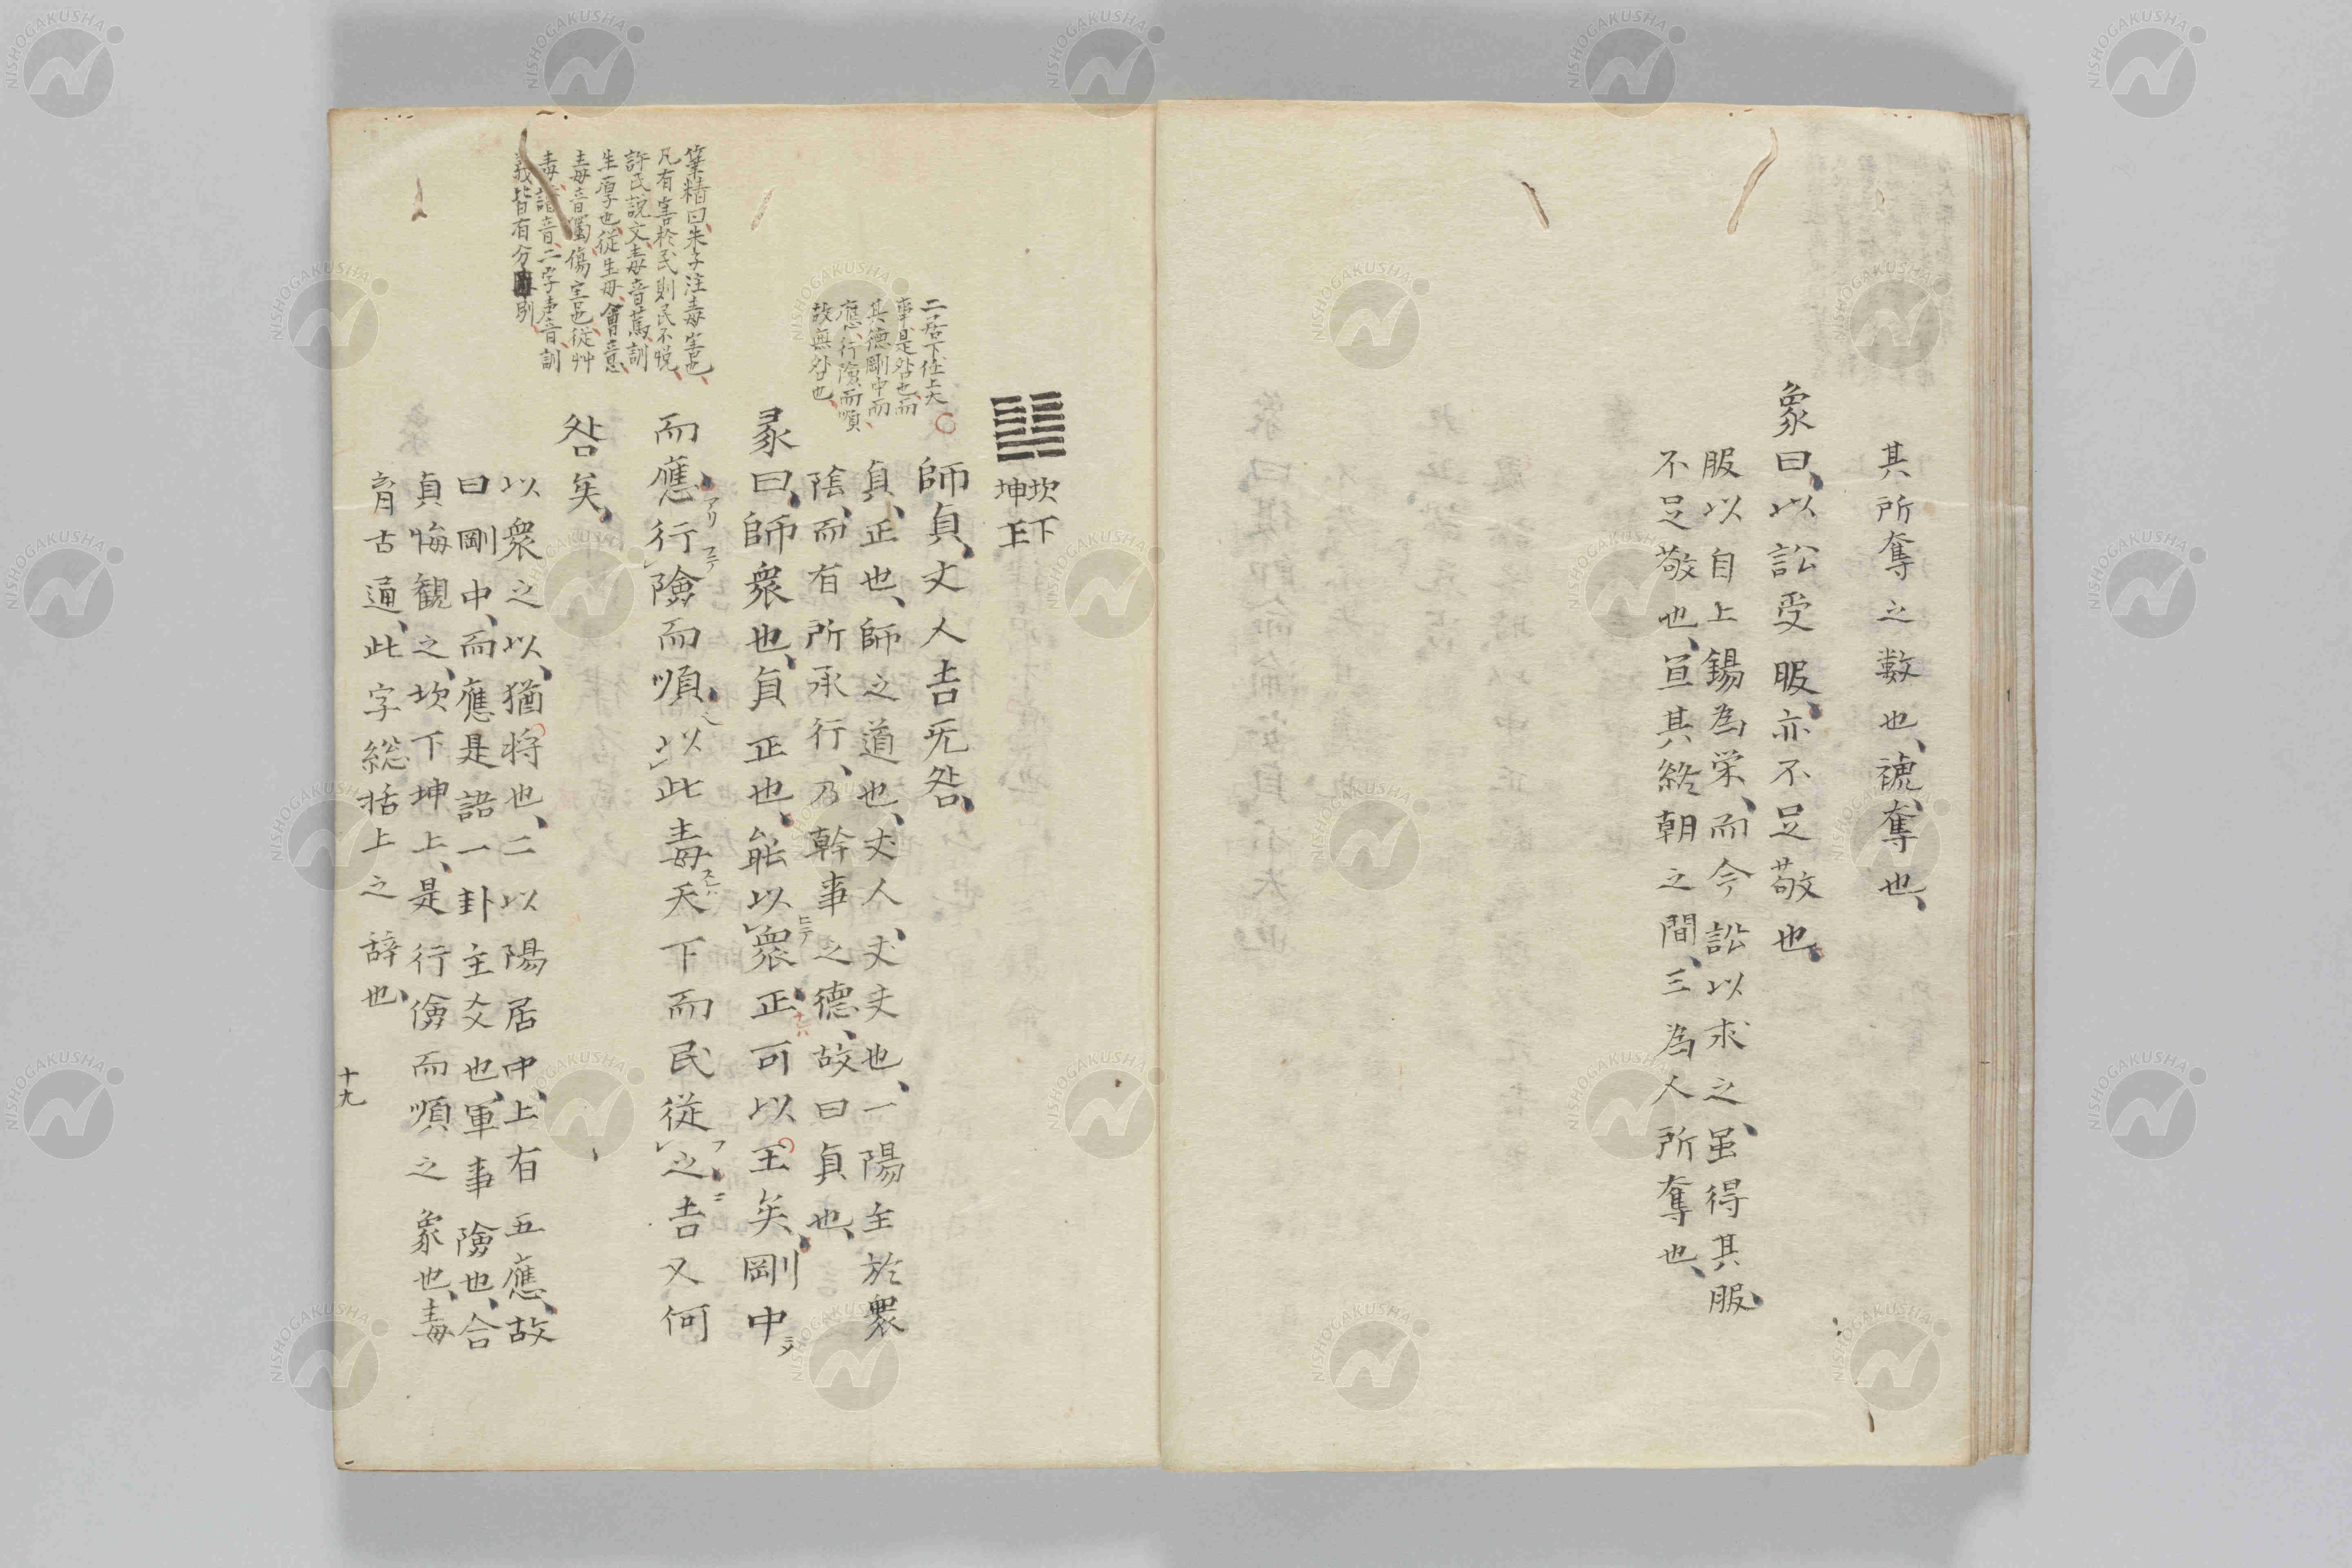 其所奪之數也、褫、奪也、
象曰、以訟受服、亦不足敬也、
服以自上錫為栄、而今訟以求之、虽得其服、
不足敬也、宣其終朝之間、三為人所奪也、
坎下
坤上
師貞、丈人吉无咎、
貞、正也、師之道也、丈人、丈夫也、一陽主於衆
陰、而有所承行、乃幹事之德、故曰貞也、
彖曰、師衆也、貞正也、能以衆正、可以王矣、剛中
而應、行險而順、以此毒天下而民從之、吉又何
咎矣、
以衆之以、猶将也、二以陽居中、上有五應、故
曰剛中、而應是語一卦主爻也、軍事險也、合
貞悔観之、坎下坤上、是行儉而順之象也、毒
育古通、此字総括上之辞也、
二居下位上大
事是咎也、而
其德剛中而
應、行險而順、
故無咎也、
筆精曰、朱子注毒害也、
凡有害於民則民不悦、
許氏説文、毒音篤、訓
生厚也、従生毋、會意、
毒音獨、傷害也、従艸
毒、諧音、二字声音、訓
義皆有分別
十九
NISHOGAKUSHA